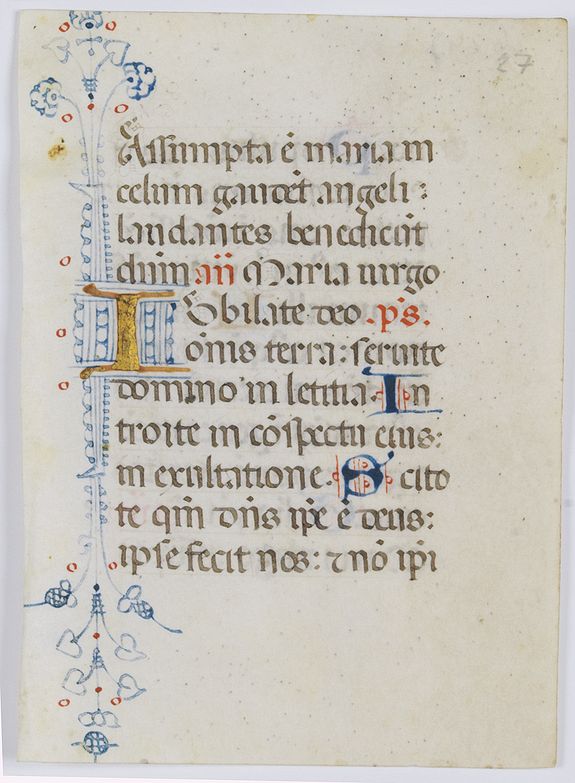 27
Assumpta ē maria in
celum gaudēt angeli :
laudantes benedicūt
dñm añ Maria uirgo
Iobilate deo .ps.
ōnis terra: seruite
domino in letitia. In
troite in cōspectu eius:
in exultatione. Scito
te qm̄ dñs ip̄e ē deus:
ipse fecit nos: ⁊ nō ip̄i